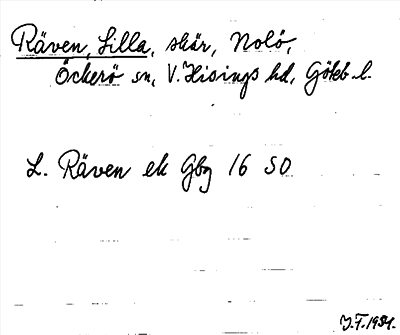 Räven, Lilla, skär, Nolö,
Öckerö sn, V. Hisings hd, Göteb. l.
L. Räven ek Gbg 16 SO
J.F. 1934.